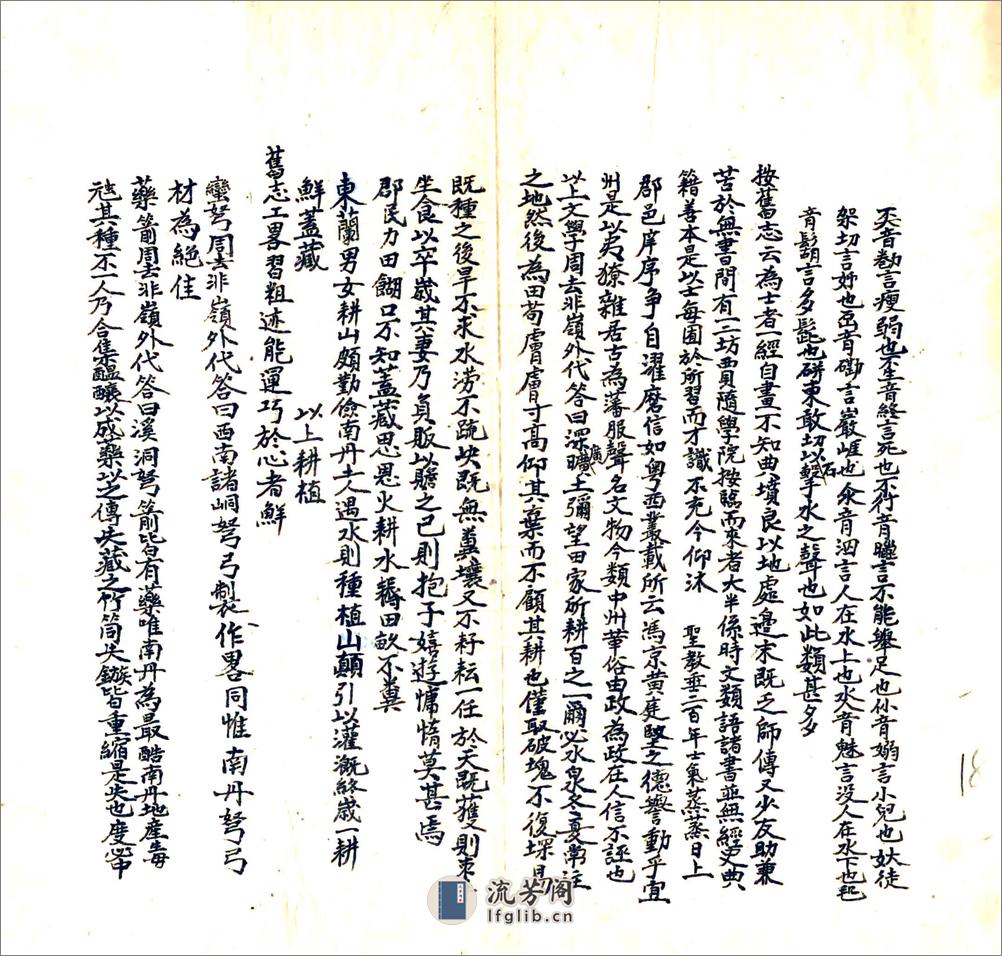 奀音勌言瘦弱也𡘭音終言死也不行音臘言不能舉足也仦音嫋言小兒也妖徒
架切言姊也岊音磡言巖崖也氽音泅言人在水上也氼音魅言没人在水下也乱
音鬍言多髭也研東敢切以石擊水之聲也如此類甚多
按舊志云為士者一經自畫不知典墳良以地處邊末既乏師傳又少友助兼
苦於無書間有一二坊賈隨學院按臨而來者大半係時文類語諸書並無經史典
籍善本是以士每囿於所習而才識不充今仰沐 聖教垂二百年士氣蒸蒸日上
郡邑庠序争自濯磨信如粤西叢載所云馮京黃庭堅之德譽動乎宜
州是以夷獠雜居古為藩服聲名文物今類中州華俗由政為政在人信不誣也
以上文學周去非嶺外代答曰深曠廣土彌望田家所耕百之一爾必水泉冬夏常注
之地然後為田苟膚膚寸高仰其棄而不顧其耕也僅取破塊不復深易
既種之後旱不求水澇不疏决既無糞壤又不耔耘一任於天既獲則束
坐食以卒歲其妻乃負販以贍之已則抱子嬉遊慵惰莫甚焉
郡民力田餬口不知蓋藏思恩火耕水耨田畝不糞
東蘭男女耕山頗勤儉南丹土人遇水則種植山顛引以灌溉終歲一耕
鮮蓋藏 以上耕植
舊志工畧習粗迹能運巧於心者鮮
蠻弩周去非嶺外代答曰西南諸峒弩弓製作畧同惟南丹弩弓
材為絕佳
藥箭周去非嶺外代答曰溪洞弩箭皆有藥唯南丹為最酷南丹地產毒
虺其種不一人乃合集醞釀以成藥以之傳矢藏之竹筒矢鏃皆重縮是矢也度必中
18
流芳阁
lfglib.cn